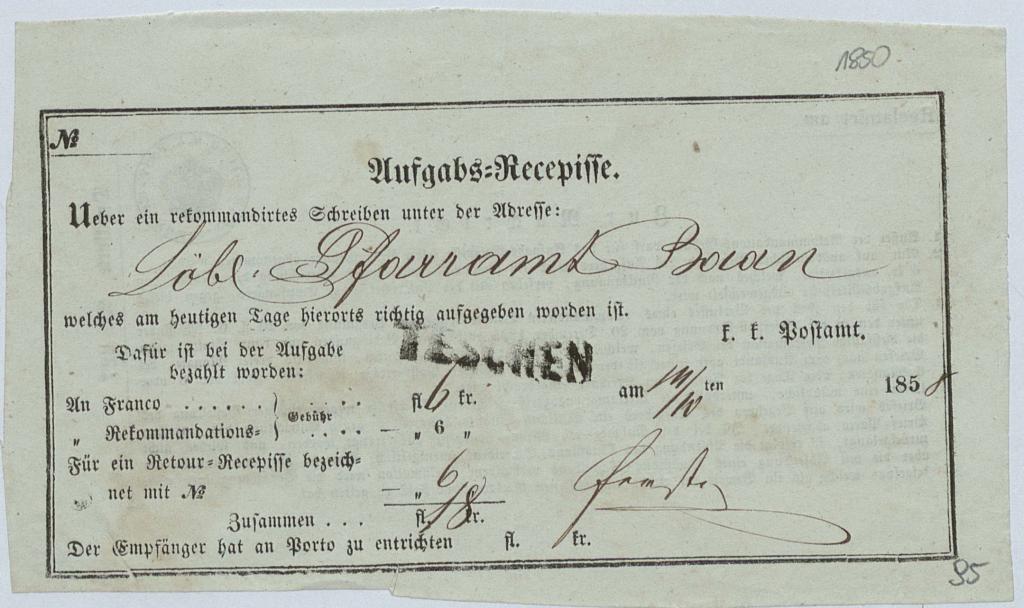 1850
№
Aufgabs-Recepisse.
Ueber ein rekommandirtes Schreiben unter der Adresse:
Löbl. Pfarramt Baan
welches am heutigen Tage hierorts richtig aufgegeben worden ist.
k. k. Postamt.
TESCHEN
Dafür ist bei der Aufgabe
bezahlt worden:
am 14/10 ten 1858
An Franco . . . . . . } Gebühr . . . . fl. 6 kr.
„ Rekommandations- } . . . . — „ 6 „
Für ein Retour-Recepisse bezeich-
net mit № — „ 6
Zusammen . . . fl. 18 kr.
Der Empfänger hat an Porto zu entrichten fl. kr.
95